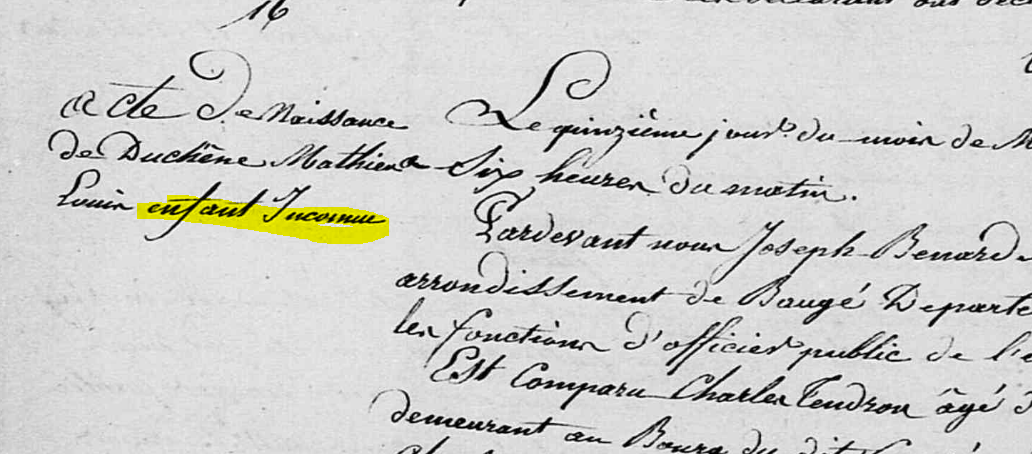 16
acte de Naissance
de Duchêne Mathieu
Louis enfant Inconnu
Le quinzième jour du mois de
à Six heures du matin.
Pardevant nous Joseph Benard
arrondissement de Baugé Departe
les fonctions d'officier public de l'é
Est Comparu Charles Tendron âgé
demeurant au Bourg du dit